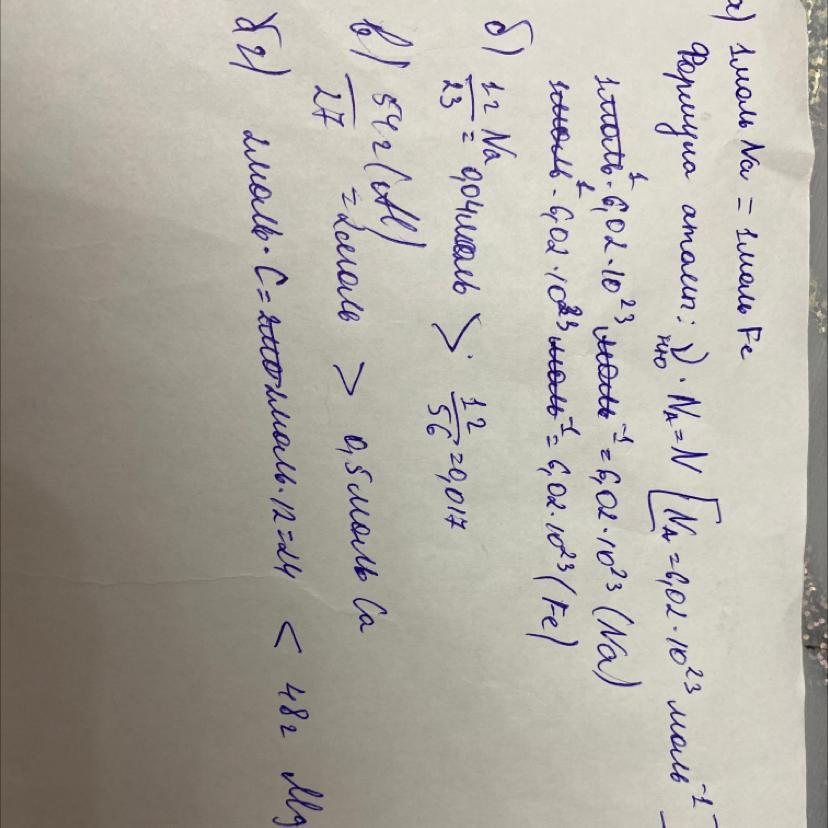 а) 1 моль Na = 1 моль Fe
Формула атомн: ν · NA = N [NA = 6,02 · 10²³ моль⁻¹
1 моль · 6,02 · 10²³ моль⁻¹ = 6,02 · 10²³ (Na)
1 моль · 6,02 · 10²³ моль⁻¹ = 6,02 · 10²³ (Fe)
б) 1г Na / 23 = 0,04 моль > 1г / 56 = 0,017
в) 54г (Al) / 27 = 2 моль > 0,5 моль Ca
г) 2 моль · C = 2 моль · 12 = 24 < 48г Mg